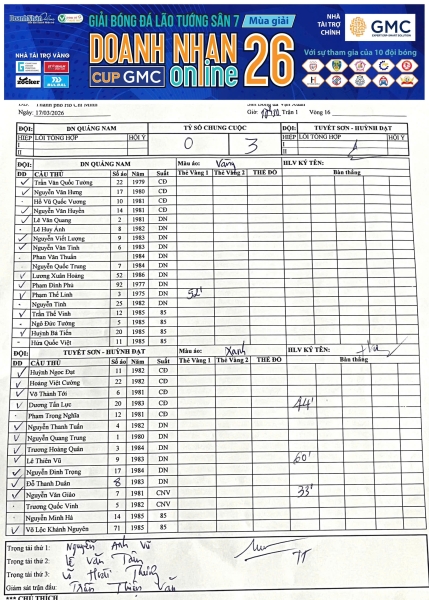 DoanhNhan
GIẢI BÓNG ĐÁ LÃO TƯỚNG SÂN 7 / Mùa giải
DOANH NHÂN 26
CUP GMC online
NHÀ TÀI TRỢ VÀNG
zocker
NHÀ TÀI TRỢ CHÍNH
GMC
Với sự tham gia của 10 đội bóng
Thành phố Hồ Chí Minh
Ngày: 17/03/2026 Giờ: Trận 1 Vòng 16
ĐỘI: DN QUẢNG NAM TỶ SỐ CHUNG CUỘC ĐỘI: TUYẾT SƠN - HUỲNH ĐẠT
HIỆP LỖI TỔNG HỢP HỘI Ý 0 3 HIỆP LỖI TỔNG HỢP HỘI Ý
I I
II II
ĐỘI: DN QUẢNG NAM Màu áo: Vàng HLV KÝ TÊN:
DD CẦU THỦ Số áo Năm Suất Thẻ Vàng 1 Thẻ Vàng 2 THẺ ĐỎ Bàn thắng
Trần Văn Quốc Tường 22 1979 CĐ
Nguyễn Văn Hưng 17 1980 CĐ
Hồ Vũ Quốc Vương 10 1981 CĐ
Nguyễn Văn Huyên 14 1981 CĐ
Lê Văn Quang 2 1981 DN
Lê Huy Ánh 8 1982 DN
Nguyễn Viết Lượng 9 1983 DN
Nguyễn Văn Tình 6 1983 DN
Phan Văn Thuấn 1984 DN
Nguyễn Quốc Trung 7 1984 DN
Lương Xuân Hoàng 52 1986 DN
Phạm Đình Phú 92 1977 DN
Phạm Thế Linh 3 1975 DN 52'
Nguyễn Tình 25 1982 DN
Trần Thế Vinh 12 1985 85
Ngô Đức Tường 5 1985 85
Huỳnh Bá Tiến 20 1985 85
Hứa Quốc Việt 11 1985 85
ĐỘI: TUYẾT SƠN - HUỲNH ĐẠT Màu áo: Xanh HLV KÝ TÊN:
DD CẦU THỦ Số áo Năm Suất Thẻ Vàng 1 Thẻ Vàng 2 THẺ ĐỎ Bàn thắng
Huỳnh Ngọc Đạt 11 1982 CĐ
Hoàng Việt Cường 22 1982 CĐ
Võ Thành Tới 6 1981 CĐ
Dương Tấn Lực 20 1983 CĐ 44'
Phạm Trong Nghĩa 12 1981 CĐ
Nguyễn Thanh Tuấn 4 1982 DN
Nguyễn Quang Trung 1 1980 DN
Trương Hoàng Quân 3 1984 DN
Lê Thiên Vũ 9 1983 DN 60'
Nguyễn Đình Trọng 17 1984 DN
Đỗ Thanh Duân 8 1983 DN
Nguyễn Văn Giáo 7 1981 CNV 33'
Trương Quốc Vinh 5 1982 CNV
Nguyễn Minh Hà 14 1985 85
Võ Lộc Khánh Nguyên 71 1985 85
Trọng tài thứ 1: Nguyễn Anh Vũ
Trọng tài thứ 2: Lê Văn Tân
Trọng tài thứ 3:
Giám sát trận đấu: Trần Thiên Văn
*** CHÚ THÍCH